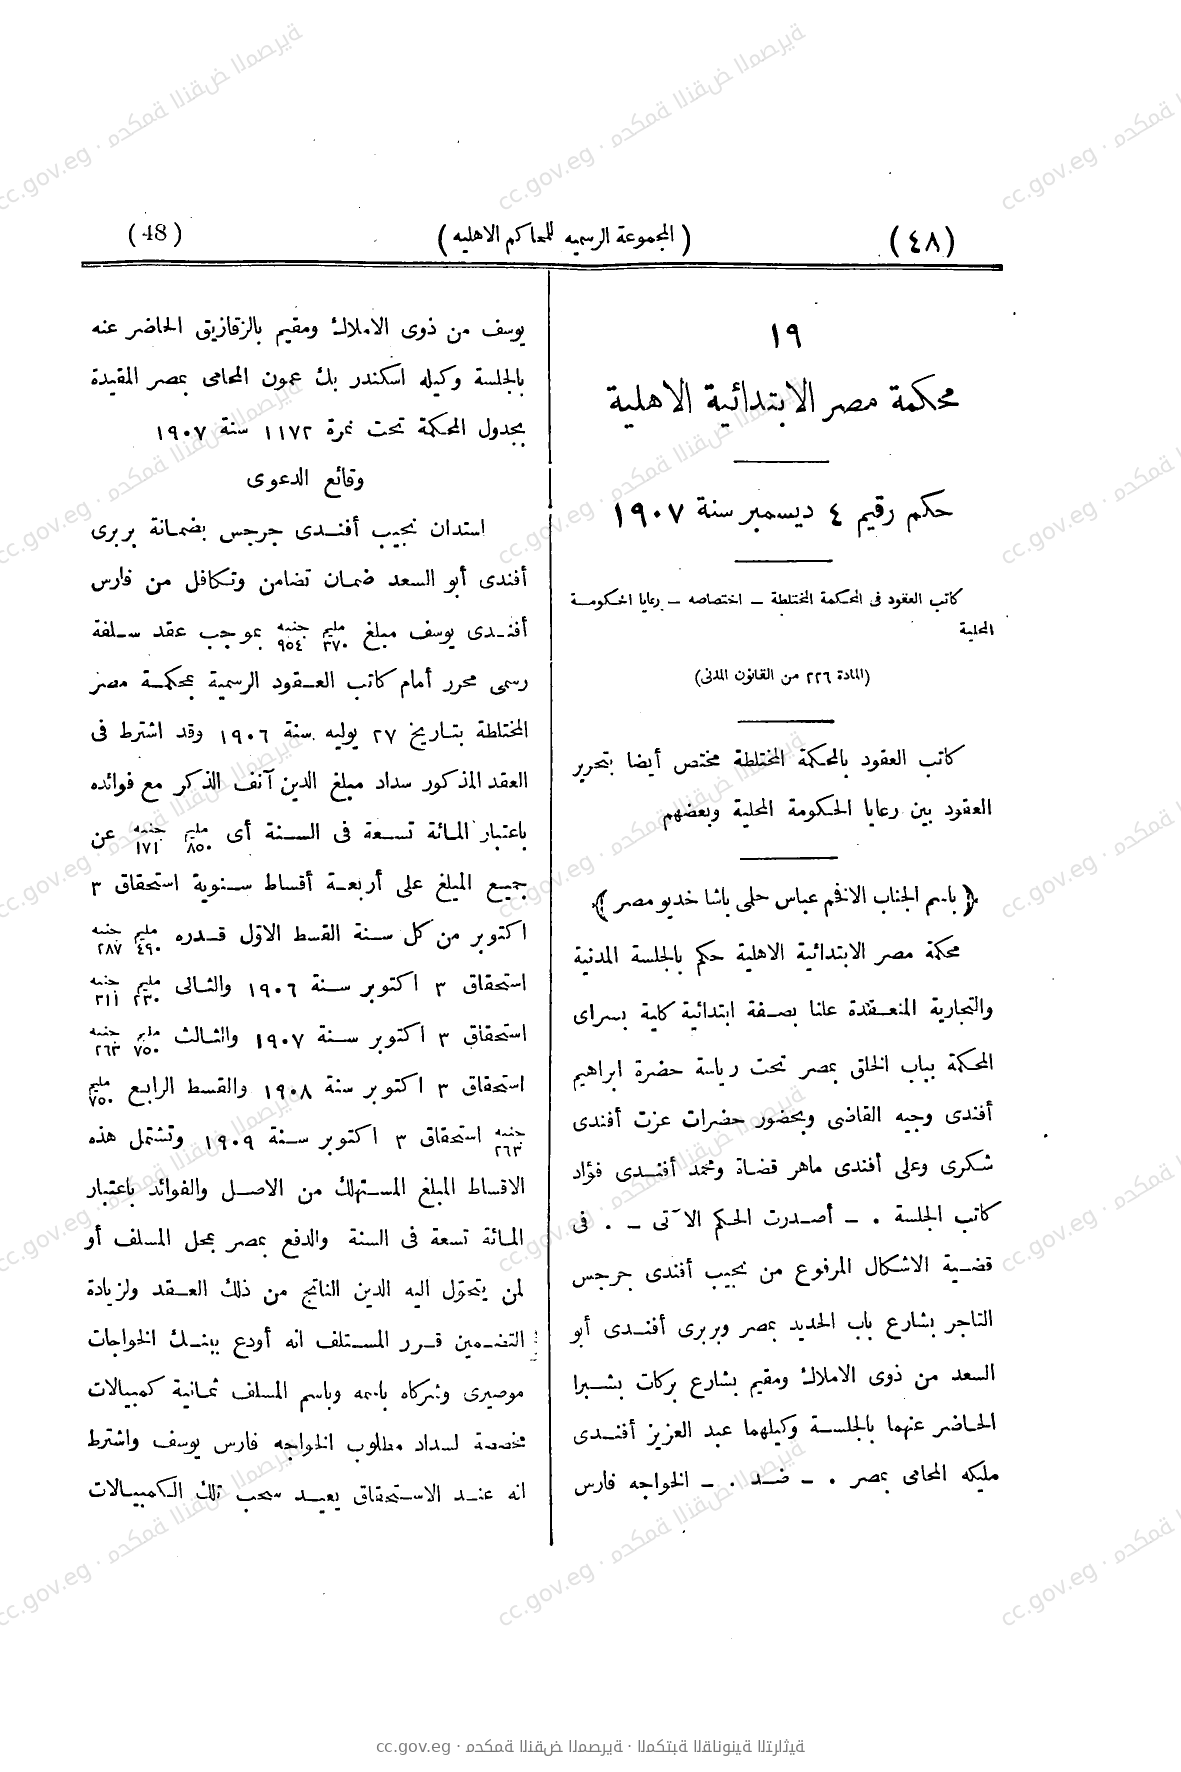 (٤٨)
(المجموعة الرسميه للمحاكم الاهليه)
(48)
١٩
محكمة مصر الابتدائية الاهلية
حكم رقيم ٤ ديسمبر سنة ١٩٠٧
كاتب العقود فى المحكمة المختلطة ــ اختصاصه ــ رعايا الحكومة
المحلية
(المادة ٢٢٦ من القانون المدنى)
كاتب العقود بالمحكمة المختلطة مختص أيضا بتحرير
العقود بين رعايا الحكومة المحلية وبعضهم
﴿باسم الجناب الافخم عباس حلمى باشا خديو مصر﴾
محكمة مصر الابتدائية الاهلية حكم بالجلسة المدنية
والتجارية المنعقدة علنا بصفة ابتدائية كلية بسراى
المحكمة بباب الخلق بمصر تحت رياسة حضرة ابراهيم
أفندى وجيه القاضى وبحضور حضرات عزت أفندى
شكرى وعلى أفندى ماهر قضاة ومحمد أفندى فؤاد
كاتب الجلسة . ــ أصدرت الحكم الآتى ــ . فى
قضية الاشكال المرفوع من نجيب أفندى جرجس
التاجر بشارع باب الحديد بمصر وبربرى أفندى أبو
السعد من ذوى الاملاك ومقيم بشارع بركات بشبرا
الحاضر عنهما بالجلسة وكيلهما عبد العزيز أفندى
مليكه المحامى بمصر . ــ ضد . ــ الخواجه فارس
يوسف من ذوى الاملاك ومقيم بالزقازيق الحاضر عنه
بالجلسة وكيله اسكندر بك عمون المحامى بمصر المقيدة
بجدول المحكمة تحت نمرة ١١٧٢ سنة ١٩٠٧
وقائع الدعوى
استدان نجيب أفندى جرجس بضمانة بربرى
أفندى أبو السعد ضمان تضامن وتكافل من فارس
أفندى يوسف مبلغ مليم ٣٧٠ جنيه ٩٥٤ بموجب عقد سلفة
رسمى محرر أمام كاتب العقود الرسمية بمحكمة مصر
المختلطة بتاريخ ٢٧ يوليه سنة ١٩٠٦ وقد اشترط فى
العقد المذكور سداد مبلغ الدين آنف الذكر مع فوائده
باعتبار المائة تسعة فى السنة أى مليم ٨٥٠ جنيه ١٧١ عن
جميع المبلغ على أربعة أقساط سنوية استحقاق ٣
اكتوبر من كل سنة القسط الاوّل قدره مليم ٤٩٠ جنيه ٢٨٧
استحقاق ٣ اكتوبر سنة ١٩٠٦ والثانى مليم ٢٣٠ جنيه ٣١١
استحقاق ٣ اكتوبر سنة ١٩٠٧ والثالث مليم ٧٥٠ جنيه ٢٦٣
استحقاق ٣ اكتوبر سنة ١٩٠٨ والقسط الرابع مليم ٧٥٠
جنيه ٢٦٣ استحقاق ٣ اكتوبر سنة ١٩٠٩ وتشتمل هذه
الاقساط المبلغ المستهلك من الاصل والفوائد باعتبار
المائة تسعة فى السنة والدفع بمصر بمحل المسلف أو
لمن يتحوّل اليه الدين الناتج من ذلك العقد ولزيادة
التضمين قرر المستلف انه أودع ببنك الخواجات
موصيرى وشركاه باسمه وباسم المسلف ثمانية كمبيالات
مخصصة لسداد مطلوب الخواجه فارس يوسف واشترط
انه عند الاستحقاق يعيد سحب تلك الكمبيالات
cc.gov.eg · محكمة النقض المصرية · المكتبة القانونية التراثية